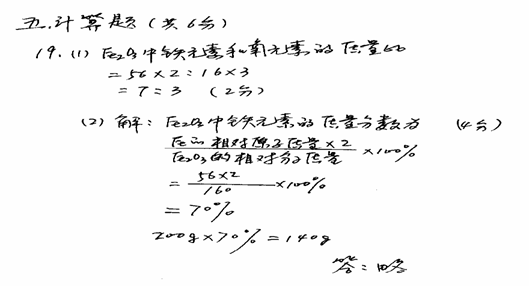 五.计算题(共6分)
19.(1) Fe2O3中铁元素和氧元素的质量比
=56×2:16×3
=7:3 (2分)
(2) 解:Fe2O3中铁元素的质量分数为 (4分)
Fe的相对原子质量×2
Fe2O3的相对分子质量 ×100%
=56×2
160 ×100%
=70%
200g×70%=140g
答:略